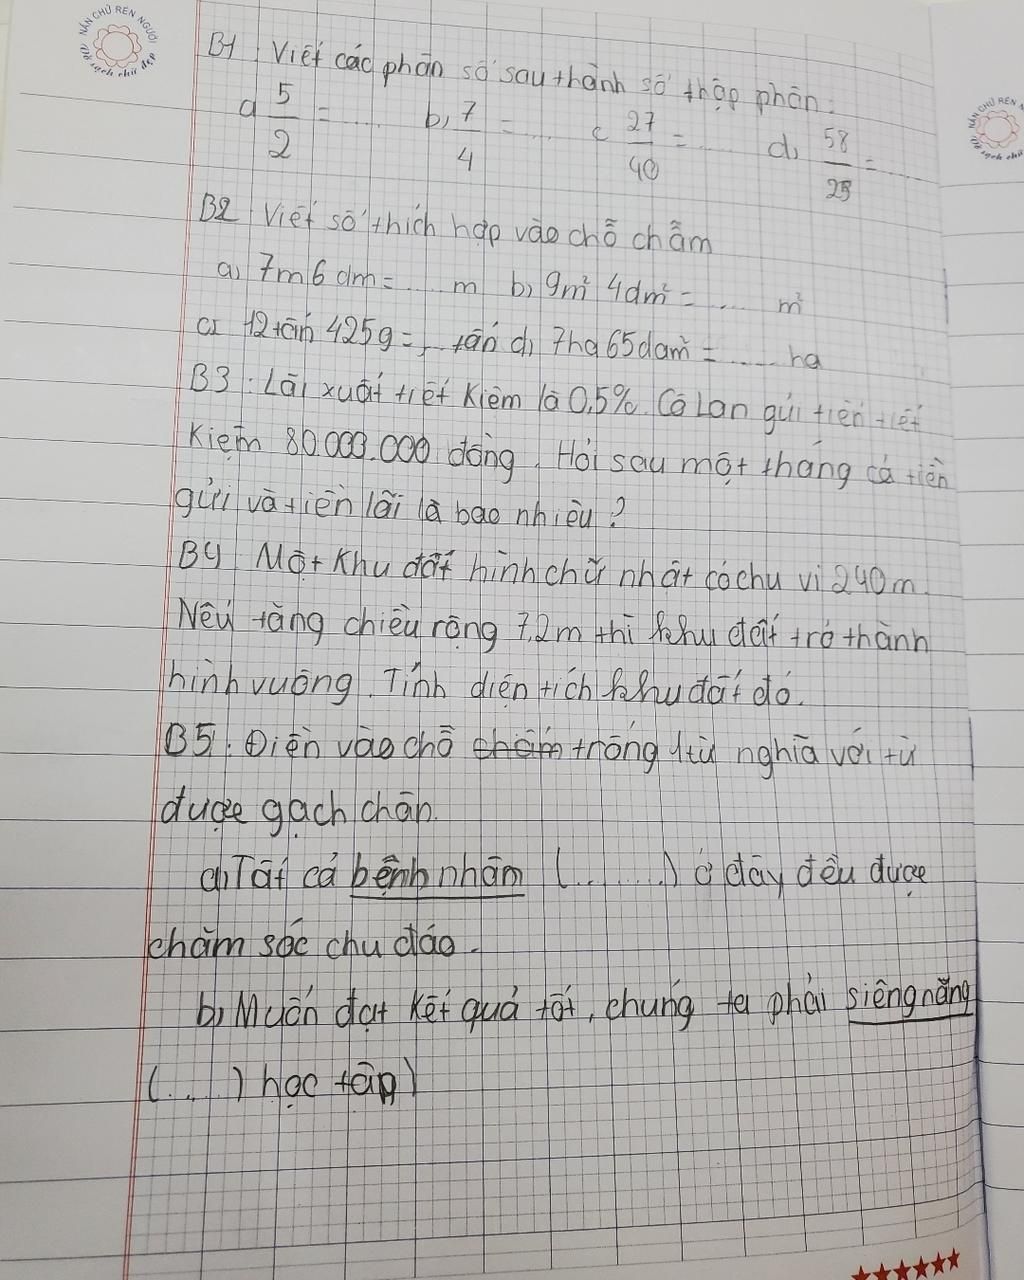 NẮN CHỮ RÈN NGƯỜI
Vở sạch chữ đẹp
NẮN CHỮ RÈN N
sạch chữ
B1 : Viết các phân số sau thành số thập phân :
a 5/2 = ..... b, 7/4 = .... c 27/40 = ..... d, 58/25 = .....
B2 Viết số thích hợp vào chỗ chấm
a, 7m6 dm = .... m b, 9m² 4dm² = ..... m²
c, 12 tấn 425g = ... tấn d, 7ha 65dam² = ..... ha
B3 : Lãi xuất tiết kiệm là 0,5%. Cô Lan gửi tiền tiết
kiệm 80.000.000 đồng. Hỏi sau một tháng cả tiền
gửi và tiền lãi là bao nhiêu ?
B4 : Một khu đất hình chữ nhật có chu vi 240m.
Nếu tăng chiều rộng 7,2m thì khu đất trở thành
hình vuông. Tính diện tích khu đất đó.
B5 : Điền vào chỗ chấm trống 1 từ nghĩa với từ
được gạch chân.
a, Tất cả bệnh nhân (.........) ở đây đều được
chăm sóc chu đáo.
b, Muốn đạt kết quả tốt, chúng ta phải siêng năng
(......) học tập)